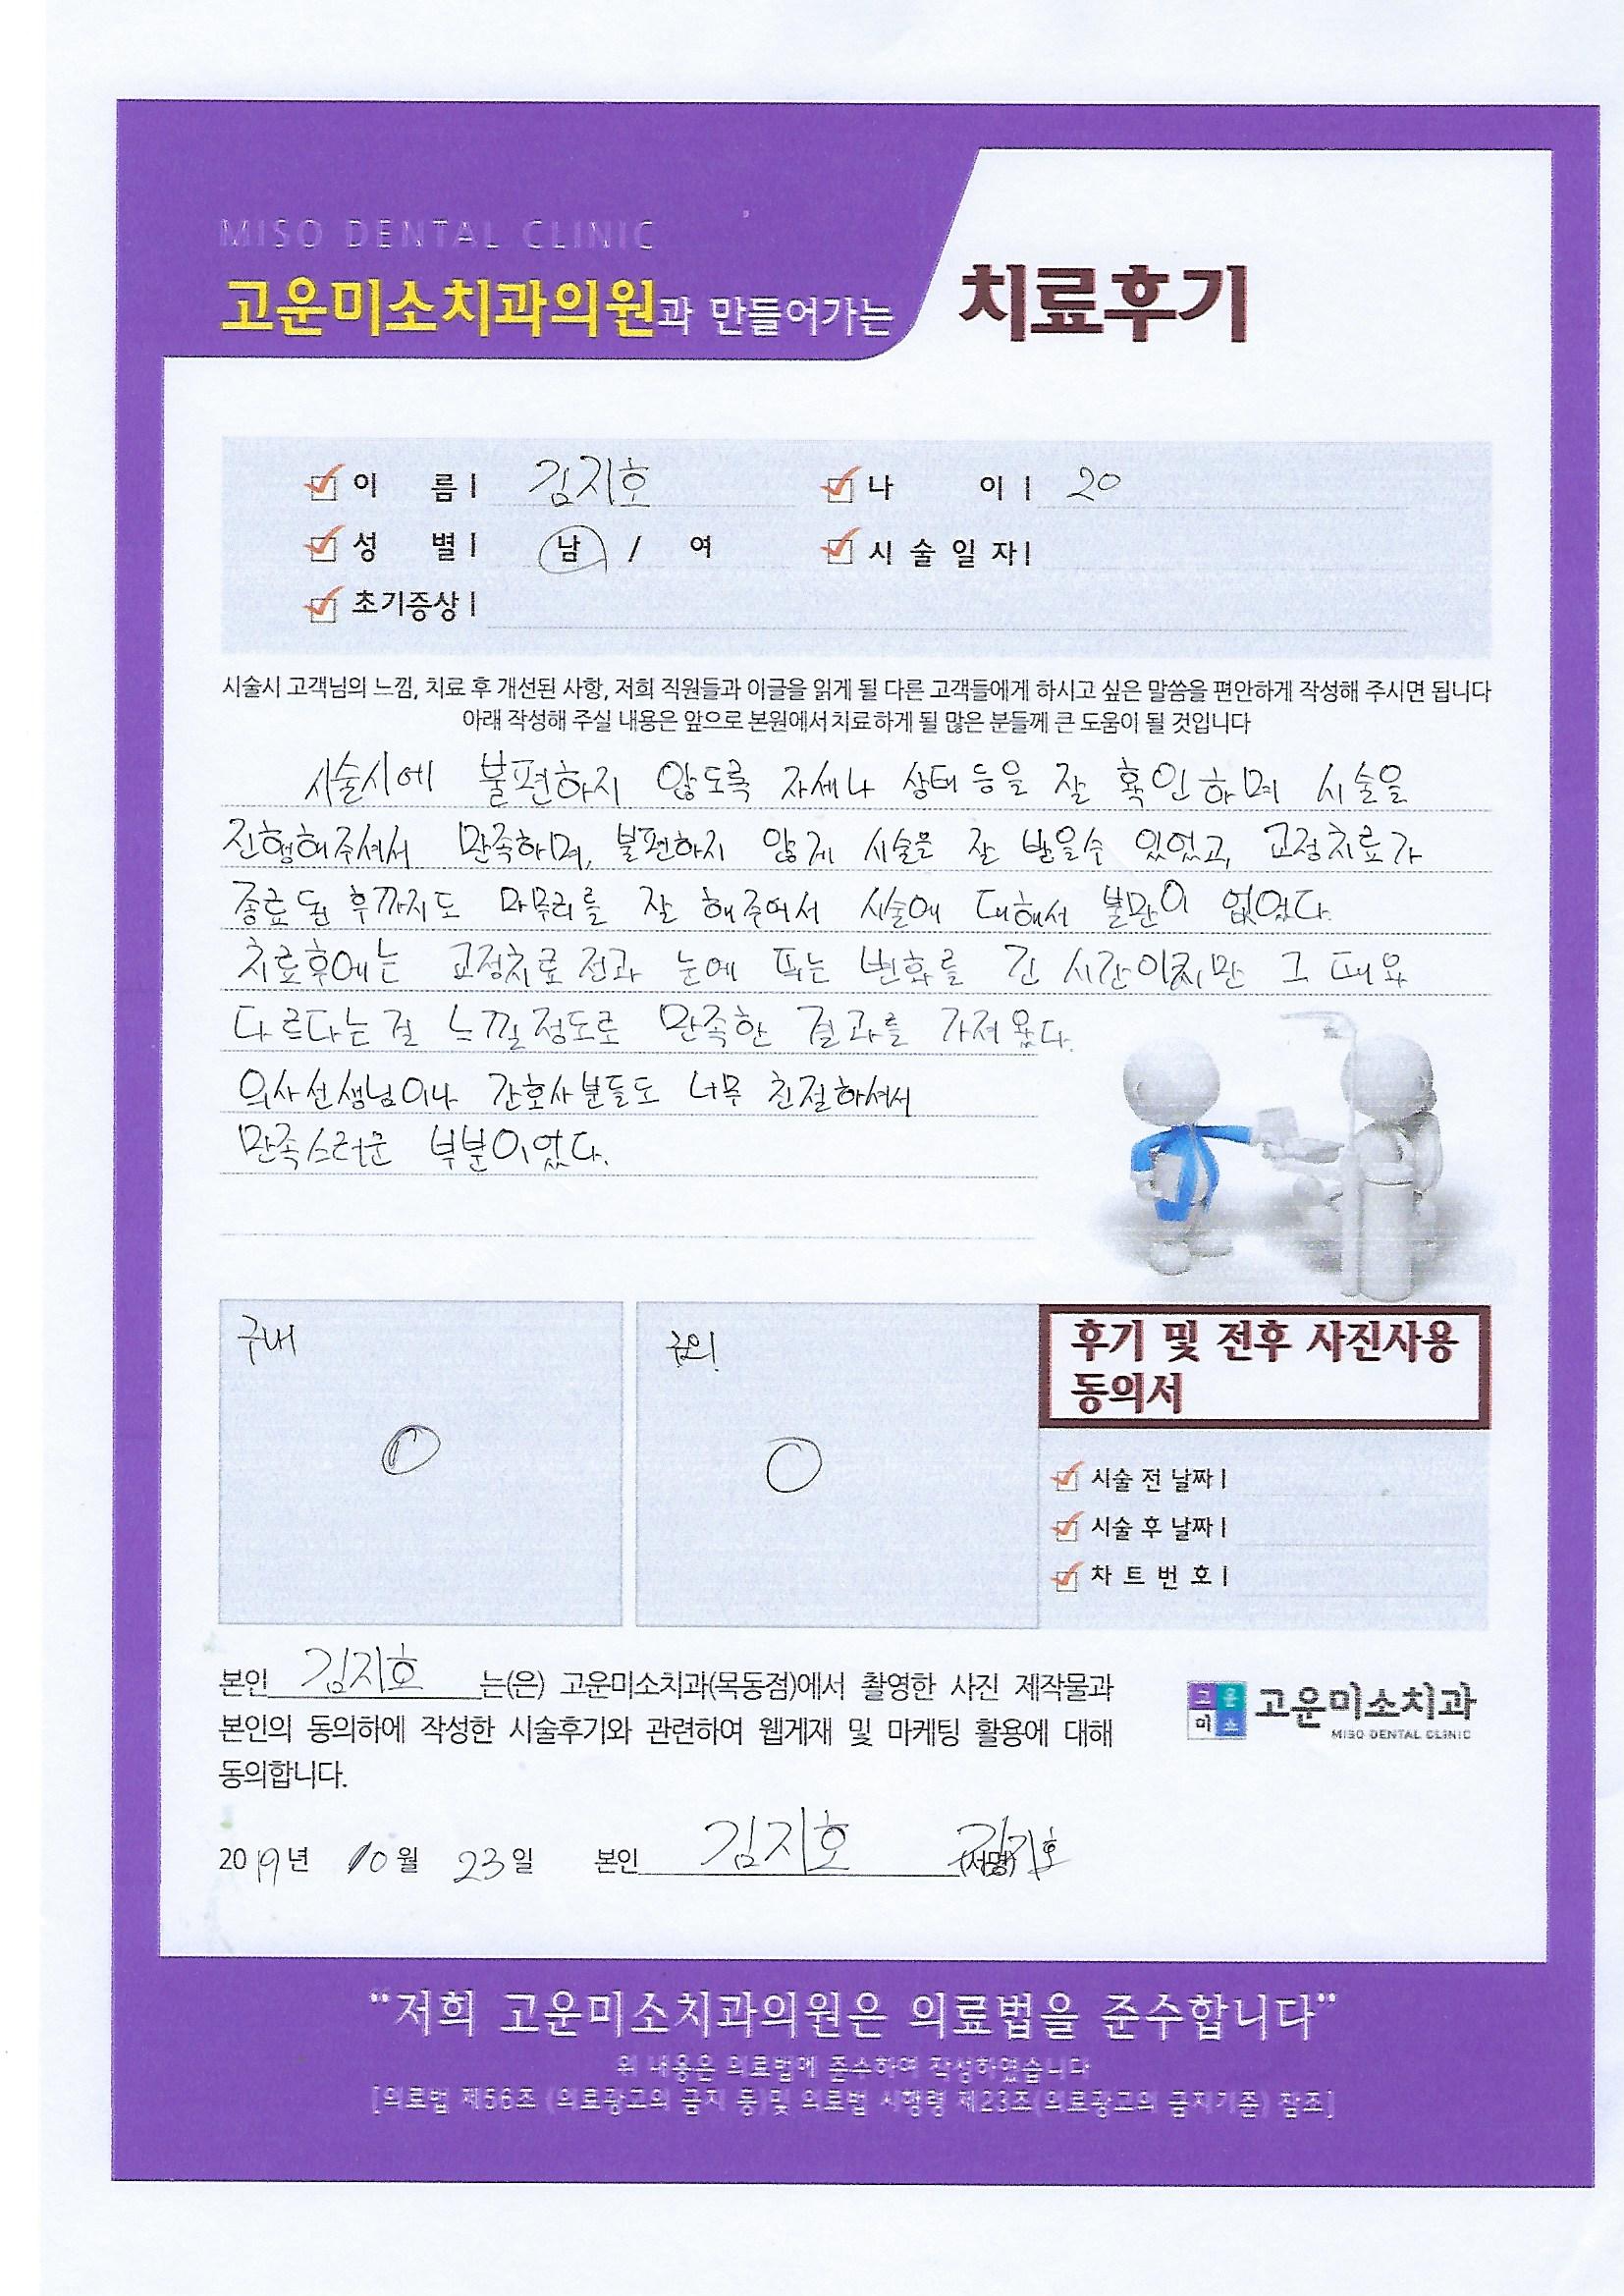 MISO DENTAL CLINIC
고운미소치과의원과 만들어가는 치료후기
이 름 | 김지호 나 이 | 20
성 별 | 남 / 여 시 술 일 자 |
초기증상 |
시술시 고객님의 느낌, 치료 후 개선된 사항, 저희 직원들과 이글을 읽게 될 다른 고객들에게 하시고 싶은 말씀을 편안하게 작성해 주시면 됩니다
아래 작성해 주실 내용은 앞으로 본원에서 치료하게 될 많은 분들께 큰 도움이 될 것입니다
시술시에 불편하지 않도록 자세나 상태 등을 잘 확인하며 시술을
진행해주셔서 만족하며, 불편하지 않게 시술을 잘 받을수 있었고, 교정치료가
종료된 후까지도 마무리를 잘 해주어서 시술에 대해서 불만이 없었다.
치료후에는 교정치료 전과 눈에 띄는 변화를 긴 시간이지만 그 때와
다르다는걸 느낄정도로 만족한 결과를 가져왔다.
의사선생님이나 간호사분들도 너무 친절하셔서
만족스러운 부분이었다.
구내 구외
후기 및 전후 사진사용
동의서
시술 전 날짜 |
시술 후 날짜 |
차 트 번 호 |
본인 김지호 는(은) 고운미소치과(목동점)에서 촬영한 사진 제작물과
본인의 동의하에 작성한 시술후기와 관련하여 웹게재 및 마케팅 활용에 대해
동의합니다.
고운미소 고운미소치과
MISO DENTAL CLINIC
2019년 10월 23일 본인 김지호 (서명) 김지호
"저희 고운미소치과의원은 의료법을 준수합니다"
위 내용은 의료법에 준수하여 작성하였습니다
[의료법 제56조 (의료광고의 금지 등)및 의료법 시행령 제23조(의료광고의 금지기준) 참조]